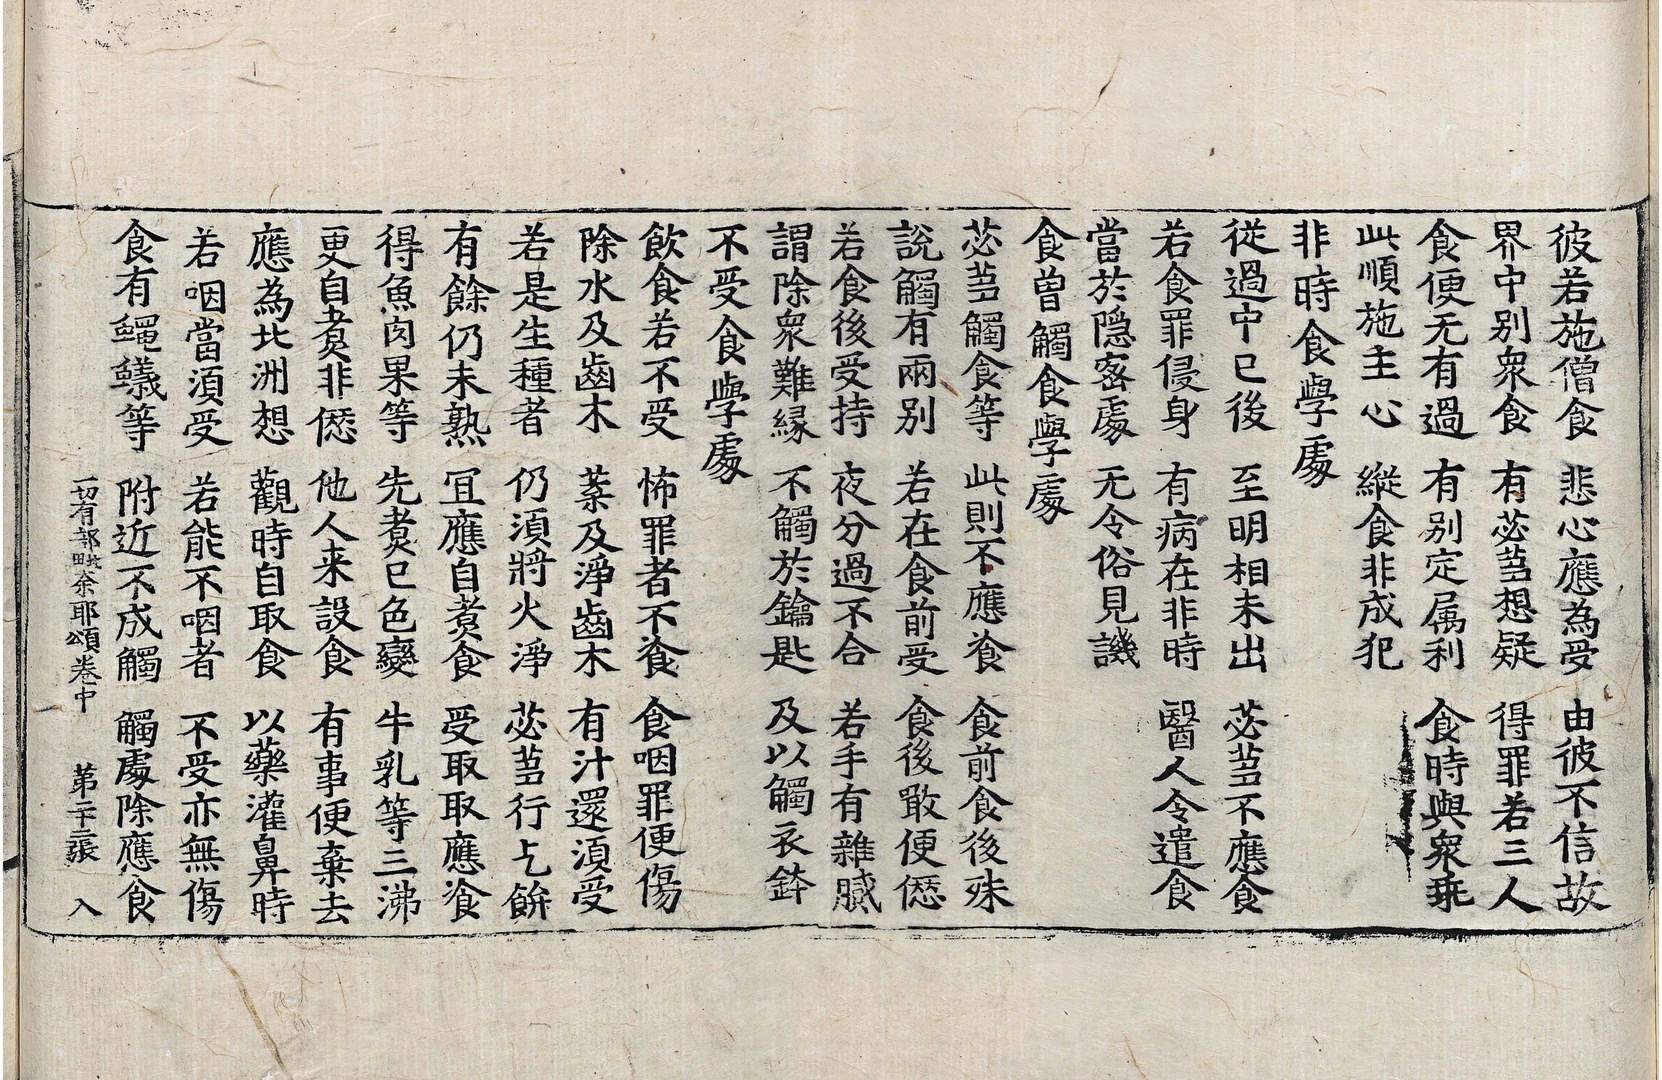 彼若施僧食　悲心應為受　由彼不信故
界中別衆食　有苾芻想疑　得罪若三人
食便无有過　有別定属利　食時與衆乖
此順施主心　縱食非成犯
非時食學處
從過中已後　至明相未出　苾芻不應食
若食罪侵身　有病在非時　醫人令遣食
當於隐密處　无令俗見譏
食曾觸食學處
苾芻觸食等　此則不應飡　食前食後殊
說觸有兩別　若在食前受　食後噉便僁
若食後受持　夜分過不合　若手有雜膩
謂除衆難緣　不觸於鑰匙　及以觸衣鉢
不受食學處
飲食若不受　怖罪者不飡　食咽罪便傷
除水及齒木　菜及淨齒木　有汁還須受
若是生種者　仍須將火淨　苾芻行乞餅
有餘仍未熟　冝應自煑食　受取取應飡
得魚肉果等　先煑已色變　牛乳等三沸
更自煑非僁　他人来設食　有事便棄去
應為北洲想　觀時自取食　以藥灌鼻時
若咽當湏受　若能不咽者　不受亦無傷
食有蠅蟻等　附近不成觸　觸處除應食
一切有部毗奈耶頌卷中　第二十二張　入